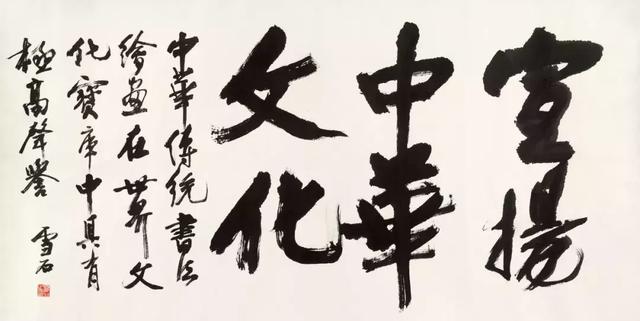 宣揚
中華
文化
中華傳統書法
繪畫在世界文
化寶庫中具有
極高聲譽
雪石